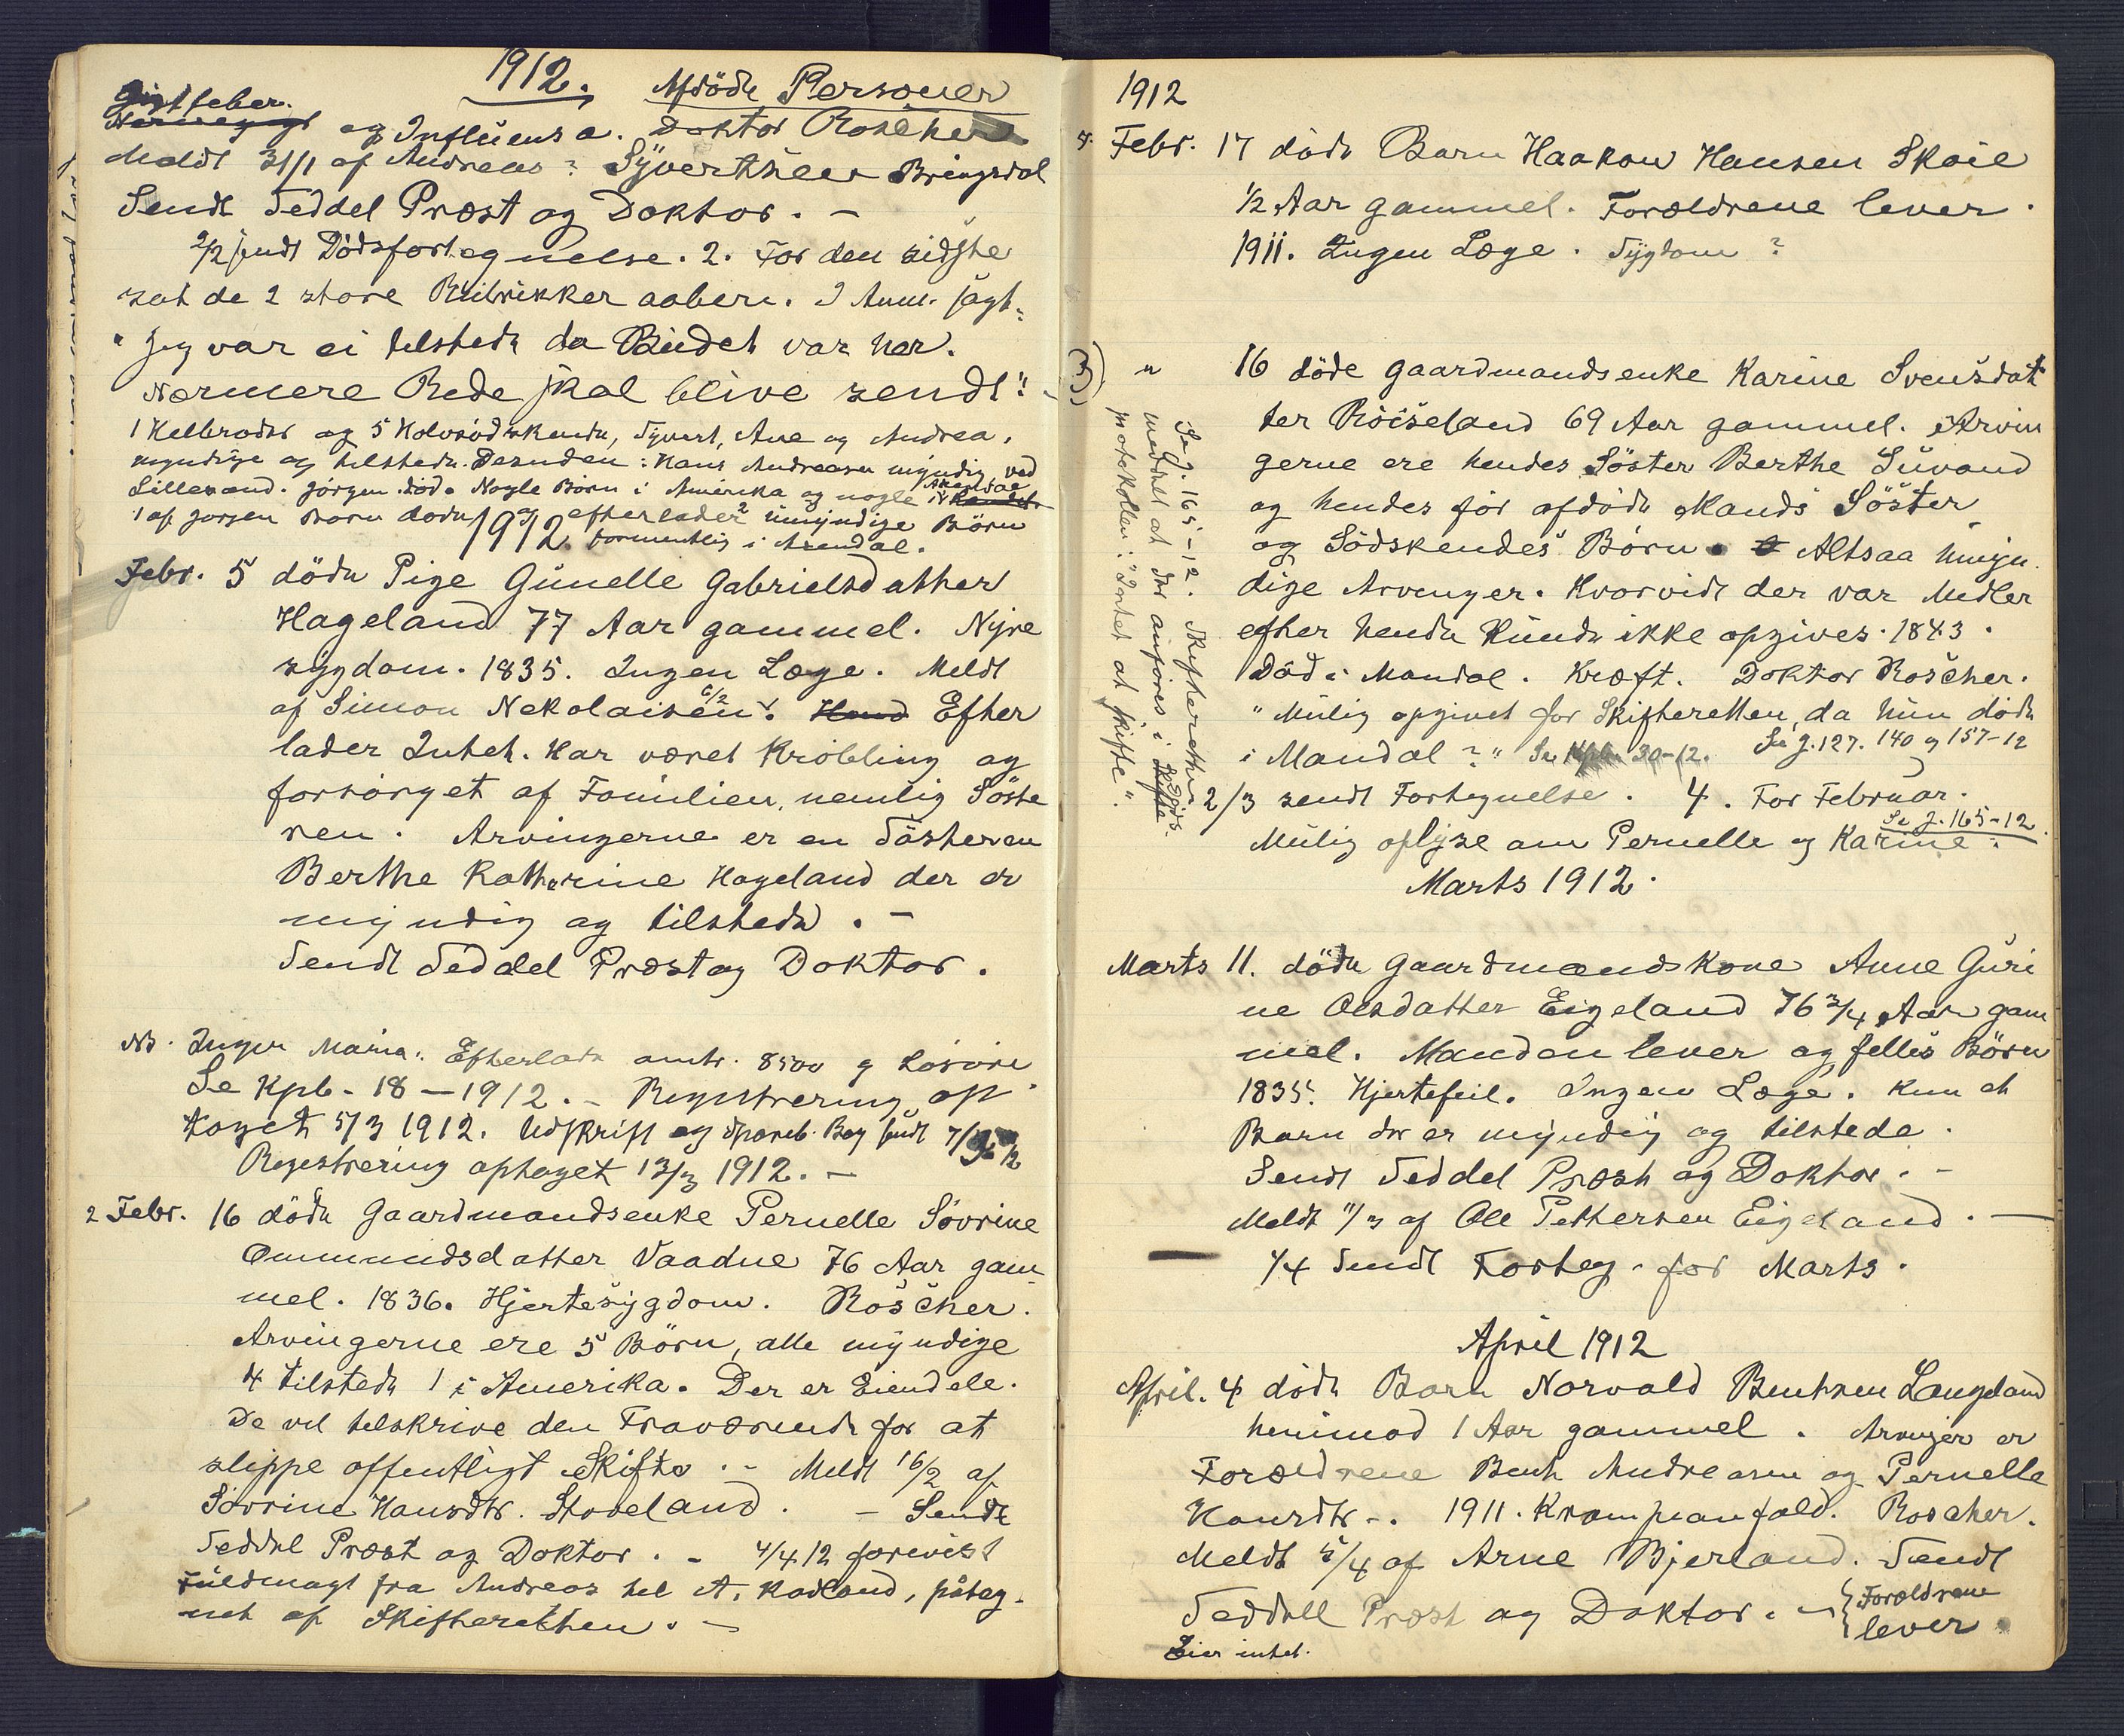 1912. Afdöde Personer
Gigtfeber.
og Influensa. Doktor Roscher
Meldt 31/1 af Andreas ? Syvertsen Bringsdal
Sendt Seddel Præst og Doktor. -
2/2 sendt Dödsfortegnelse. 2. For den sidste
sat de 2 store Rubrikker aaben. I Anm. sagt:
" Jeg var ei tilstede da Budet var her.
Nærmere Rede skal blive sendt". -
1 Helbroder og 5 Halvsödskende, Syvert, Ane og Andrea,
myndige og tilstede. Desuden: Hans Andreasen myndig ved
Lillesand. Jörgen död. Nogle Börn i Amerika og nogle i Arendal
1 af Jörgen Börn döde og efterlader 2 umyndige Börn
formentlig i Arendal.
1912.
Febr. 5 döde Pige Gunelle Gabrielsdatter
Hageland 77 Aar gammel. Nyre
sygdom. 1835. Ingen Læge. Meldt
af Simon Nekolaisen 6/2. Hand Efter
lader Intet. Har været Kröbling og
forsörget af Familien, nemlig Söste
ren. Arvingerne er en Sösteren
Berthe Kathrine Hageland der er
myndig og tilstede. -
Sendt Seddel Præst og Doktor.
NB. Inger Maria: Efterlade omtr. 8500 og Lösöre.
Se Kpb. 18-1912. - Registrering op
taget 5/3 1912. Udskrift og Spareb. Bog sendt 7/3 12
Registrering optaget 13/3 1912. -
2 Febr. 16 döde Gaardmandsenke Pernelle Sövrine
Ommundsdatter Vaadne 76 Aar gam
mel. 1836. Hjertesygdom. Roscher.
Arvingerne ere 5 Börn, alle myndige
4 tilstede 1 i Amerika. Der er Eiendele.
De vil tilskrive den Fraværende for at
slippe offentligt Skifte. - Meldt 16/2 af
Sövrine Hansdtr. Stoveland. - Sendt
Seddel Præst og Doktor. - 4/4 12 forevist
Fuldmagt fra Andreas til A. Kadland, påteg-
net af Skifteretten. -
1912
4. Febr. 17 döde Barn Haakon Hansen Skoie
1/2 Aar gammel. Forældrene lever.
1911. Ingen Læge. Sygdom ?
3) " 16 döde Gaardmandsenke Karine Svensdat
ter Röiseland 69 Aar gammel. Arvin
gerne ere hendes Söster Berthe Suvand
og hendes för afdöde Mands Söster
og Södskendes Börn. Altsaa umyn
dige Arvinger. Hvorvidt der var Medler
efter hende kunde ikke opgives. 1843.
Död i Mandal. Kræft. Doktor Roscher.
" Mulig opgivet for Skifteretten, da hun döde
i Mandal ? " Se Kpb. 30-12. Se J. 127. 140 og 157-12
2/3 sendt Fortegnelse. 4. For Februar.
Se J. 165-12.
Mulig oplyse om Pernelle og Karine.
Se J. 165-12. Skifteretten
meddelt at der anföres i Dödsfds
protokollen: "Intet at skifte".
Marts 1912.
Marts 11. döde Gaardmandskone Anne Guri
ne Olsdatter Eigeland 76 3/4 Aar gam
mel. Manden lever og felles Börn
1835. Hjertefeil. Ingen Læge. Kun et
Barn der er myndig og tilstede.
Sendt Seddel Præst og Doktor. -
Meldt 11/3 af Ole Pettersen Eigeland. -
1/4 Sendt Forteg. for Marts.
April 1912
April. 4 döde Barn Norvald Bentsen Langeland
henimod 1 Aar gammel. Arvinger er
Forældrene Bent Andreasen og Pernelle
Hansdtr. - 1911. Krampeanfald. Roscher.
Meldt 5/4 af Arne Bjerland. Sendt
Seddel Præst og Doktor. - { Forældrene
lever.
Eier intet.